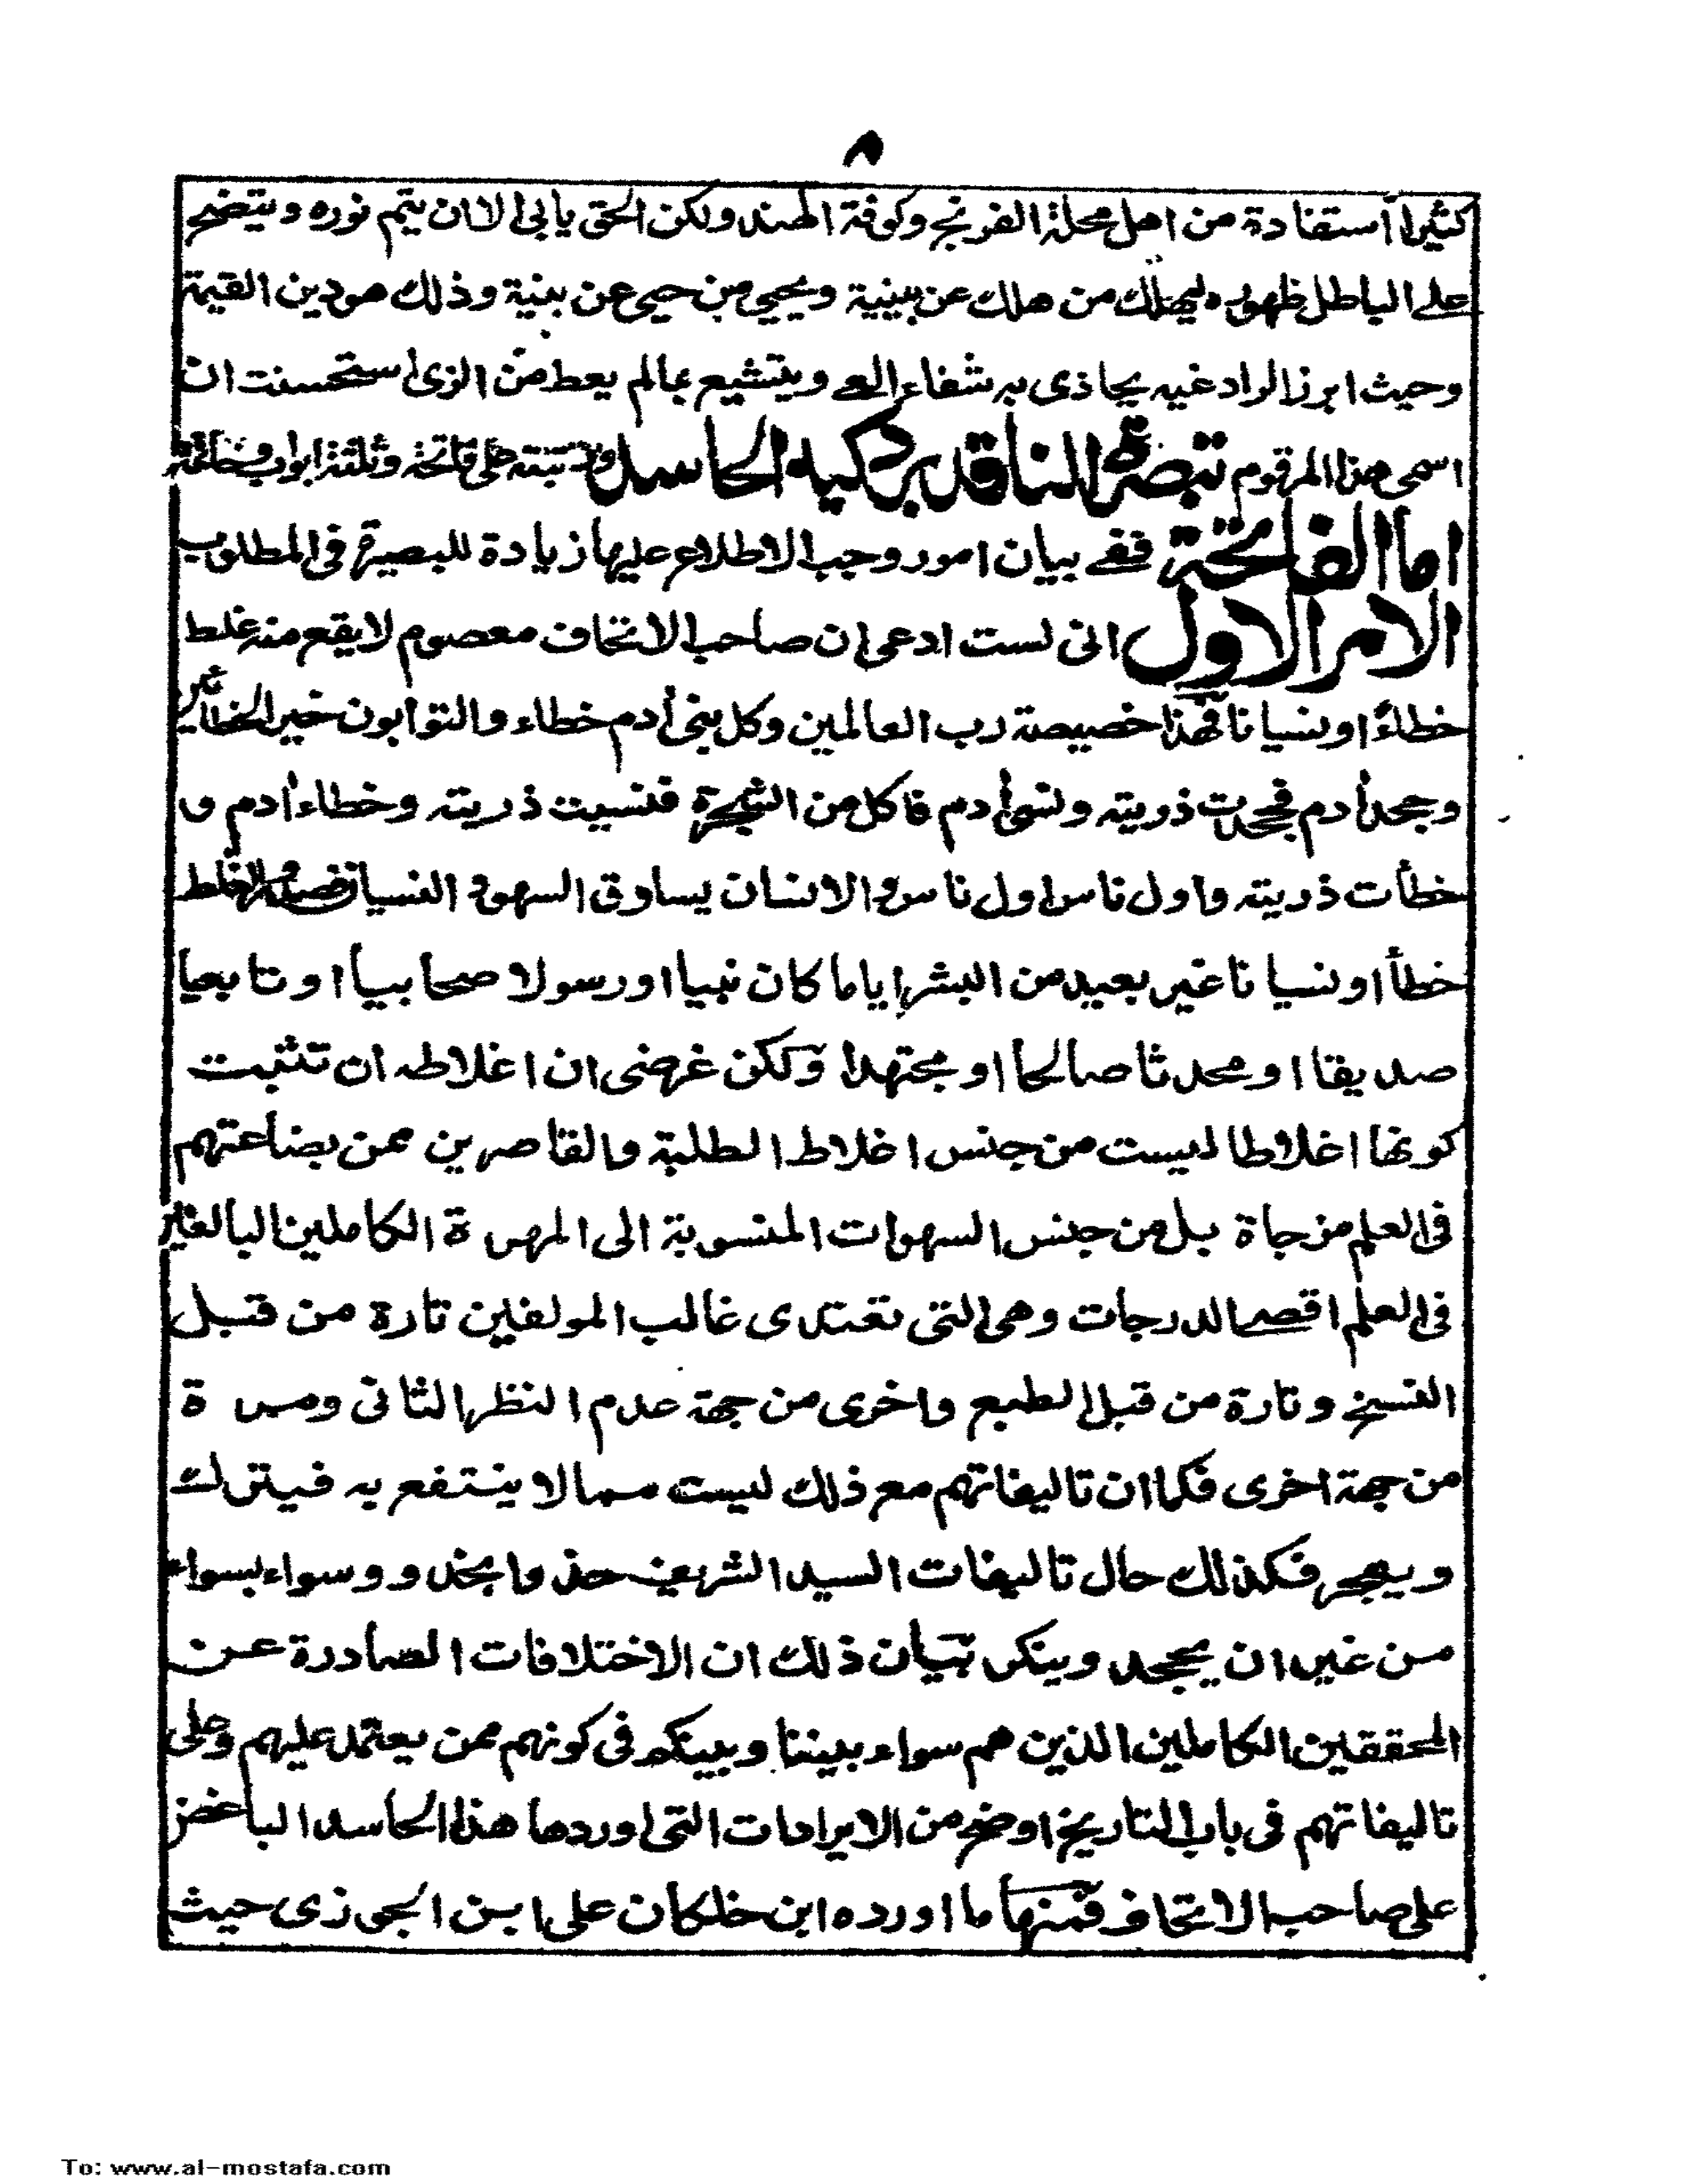 ٨
كثيرا استفادة من اهل محلة الفرنج وكوفة الهند ولكن الحق يابى الا ان يتم نوره ويتضح
على الباطل ظهوره ليهلك من هلك عن بينية ويحيى من حيى عن بينة وذلك هو دين القيمة
وحيث ابرز الراد غيه يحاذى به شفاء العى ويتشبع بما لم يعط من الزى استحسنت ان
اسمى هذا المرقوم تبصرة الناقد برد كيد الحاسد ورتبته على فاتحة وثلثة ابواب وخاتمة
اما الفاتحة ففى بيان امور وجب الاطلاع عليها زيادة للبصيرة فى المطلوب
الامر الاول انى لست ادعى ان صاحب الاتحاف معصوم لا يقع منه غلط
خطاءً او نسيانا فهذا خصيصة رب العالمين وكل بنى أدم خطاء والتوابون خير الخطائين
وجحد أدم فجحدت ذريته ونسى أدم فاكل من الشجرة فنسيت ذريته وخطاء أدم و
خطأت ذريته واول ناس اول ناس والانسان يساوق السهو و النسيان فصدور الغلط
خطأ او نسيانا غير بعيد من البشر اياما كان نبيا او رسولا صحابيا او تابعيا
صديقا او محدثا صالحا او مجتهدا ولكن غرضى ان اغلاطه ان تثبت
كونها اغلاطا ليست من جنس اغلاط الطلبة والقاصرين ممن بضاعتهم
فى العلم مزجاة بل من جنس السهوات المنسوبة الى المهرة الكاملين البالغين
فى العلم اقصى الدرجات وهى التى تعترى غالب المولفين تارة من قبل
النسخ وتارة من قبل الطبع واخرى من جهة عدم النظر الثانى ومرة
من جهة اخرى فكما ان تاليفاتهم مع ذلك ليست مما لا ينتفع به فيترك
ويهجر فكذلك حال تاليفات السيد الشريف حذوا بحذو وسواء بسواء
من غير ان يجحد وينكر بيان ذلك ان الاختلافات الصادرة عن
المحققين الكاملين الذين هم سواء بيننا وبينكم فى كونهم ممن يعتمد عليهم وعلى
تاليفاتهم فى باب التاريخ اوضح من الايرادات التى اوردها هذا الحاسد الباغض
على صاحب الاتحاف فمنها ما اورده ابن خلكان على ابن الجوزى حيث
To: www.al-mostafa.com